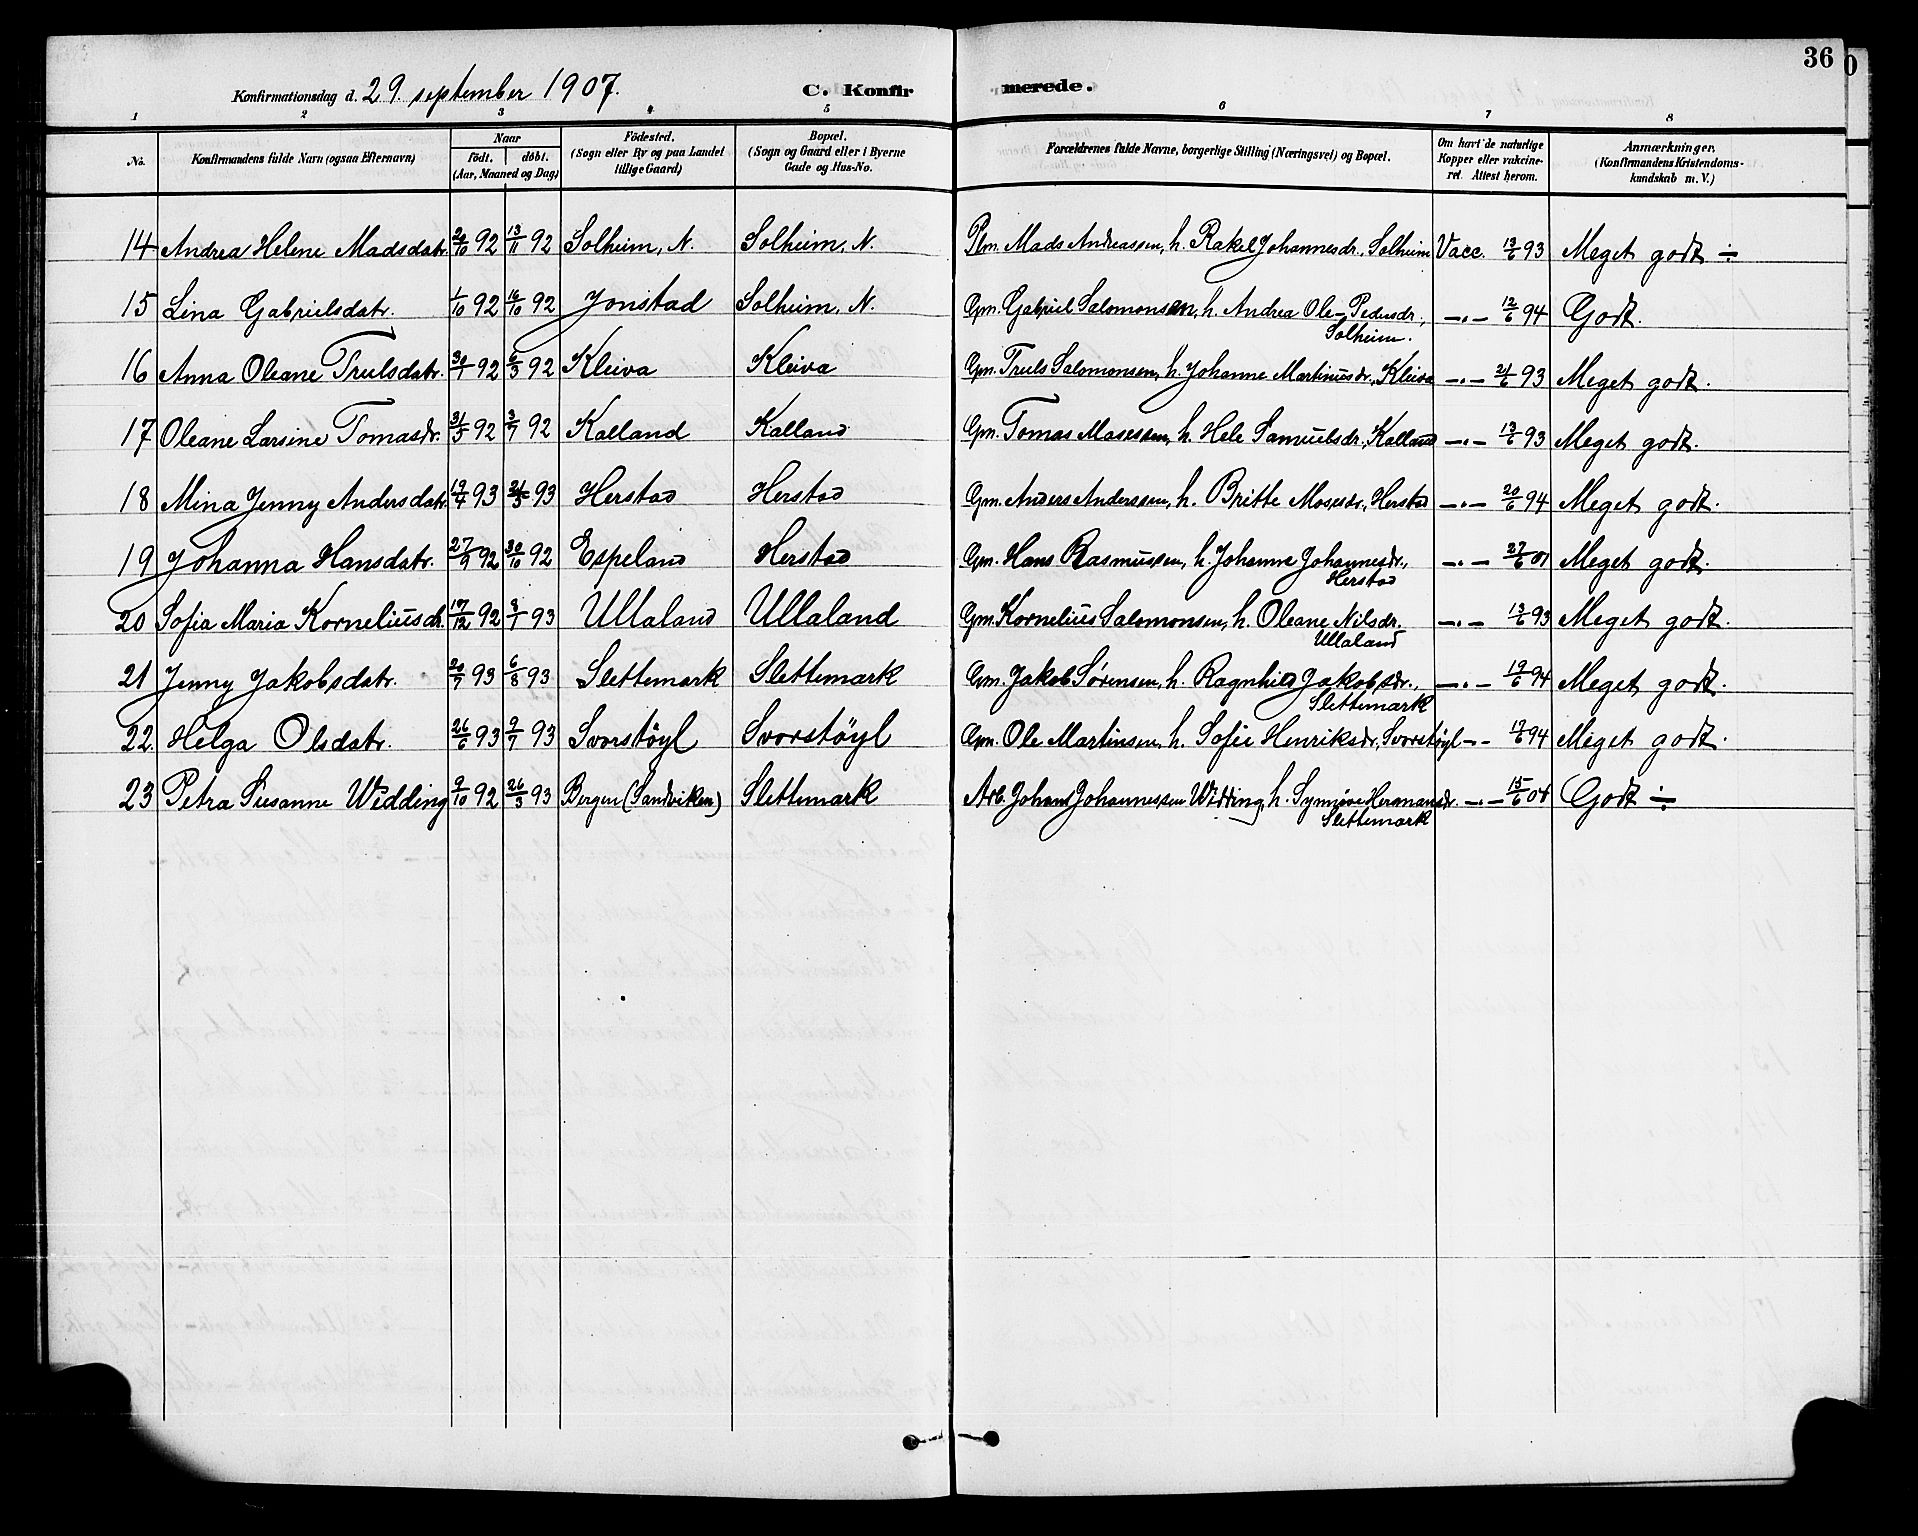 36
Konfirmationsdag d. 29. september 1907.
C. Konfirmerede.
1 2 3 4 5 6 7 8
No. Konfirmandens fulde Navn (ogsaa Efternavn) Naar födt. döbt. (Aar, Maaned og Dag) Födested. (Sogn eller By og paa Landet tillige Gaard) Bopæl. (Sogn og Gaard eller i Byerne Gade og Hus-No. Forældrenes fulde Navne, borgerlige Stilling (Næringsvei) og Bopæl. Om havt de naturlige Kopper eller vakcineret. Attest herom. Anmærkninger. (Konfirmandens Kristendomskundskab m. V.)
14 Andrea Helene Madsdatr. 20/10 92 13/11 92 Solheim, N. Solheim, N. Pm. Mads Andreassen, h. Rakel Johannesdr., Solheim Vacc. 13/6 93 Meget godt ÷
15 Lina Gabrielsdatr. 1/10 92 16/10 92 Jonstad Solheim, N. Gm. Gabriel Salomonsen, h. Andrea Ole-Pedersdr., Solheim. —"— 12/6 94 Godt.
16 Anna Oleane Trulsdatr. 30/1 92 6/3 92 Kleiva Kleiva Gm. Truls Salomonsen, h. Johanne Martinusdr., Kleiva —"— 21/6 93 Meget godt.
17 Oleane Larsine Tomasdr. 31/5 92 3/7 92 Kalland Kalland Gm. Tomas Mosessen, h. Hele Samuelsdr., Kalland —"— 13/6 93 Meget godt.
18 Mina Jenny Andersdatr. 93 93 Herstad Herstad Gm. Anders Anderssen, h. Britte Mosesdr., Herstad —"— 20/6 94 Meget godt.
19 Johanna Hansdatr. 27/9 92 30/10 92 Espeland Herstad Gm. Hans Rasmussen, h. Johanne Johannesdr., Herstad —"— 27/6 01 Meget godt.
20 Sofia Maria Korneliusdr. 17/12 92 8/1 93 Ullaland Ullaland Gm. Kornelius Salomonsen, h. Oleane Nilsdr. Ullaland —"— 13/6 93 Meget godt.
21 Jenny Jakobsdatr. 20/7 93 6/8 93 Slettemark Slettemark Gm. Jakob Sørensen, h. Ragnhild Jakobsdr., Slettemark —"— 19/6 94 Meget godt.
22 Helga Olsdatr. 26/6 93 9/7 93 Svorstöyl Svorstöyl Gm. Ole Martinsen, h. Sofie Henriksdr., Svorstöyl —"— 19/6 94 Meget godt.
23 Petra Susanne Widding 9/10 92 26/3 93 Bergen (Sandviken) Slettemark Arb. Johan Johannessen Widding, h. Synnöve Hermansdr. Slettemark —"— 15/6 Godt ÷